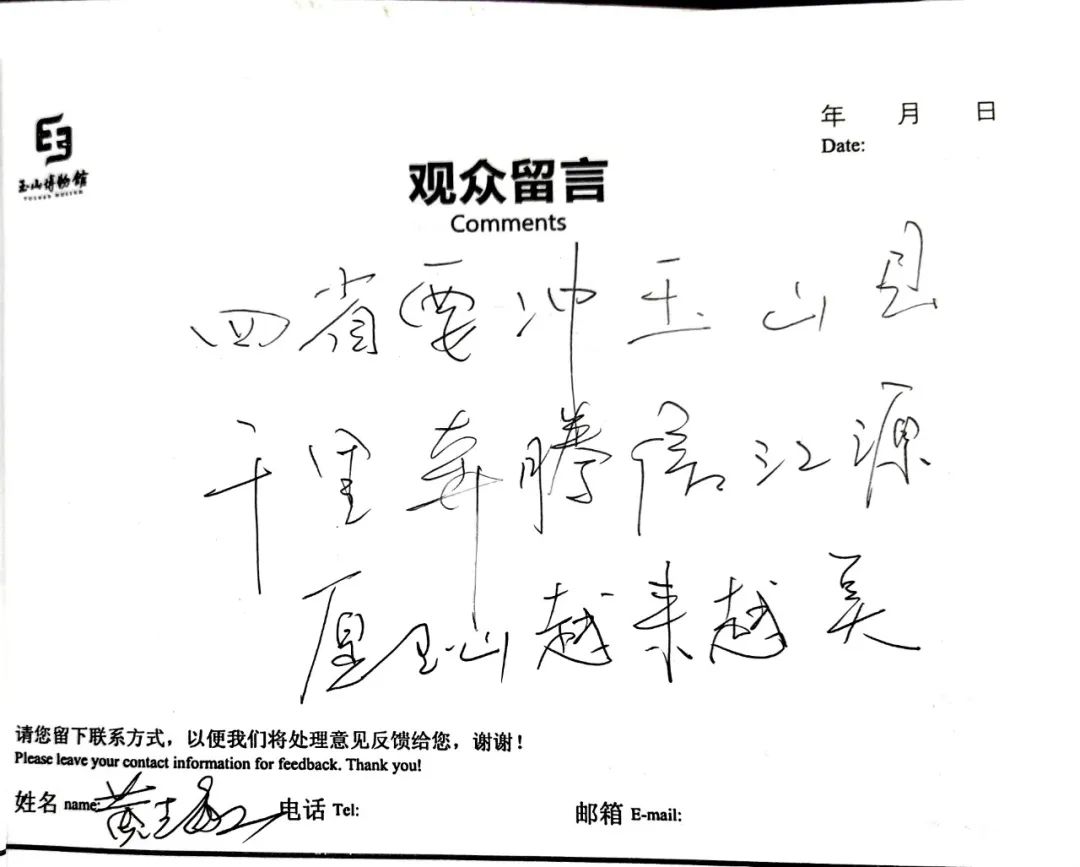 玉山博物馆
YUSHAN MUSEUM
年 月 日
Date:
观众留言
Comments
四省要冲玉山县
千里奔腾信江源
愿玉山越来越美
请您留下联系方式，以便我们将处理意见反馈给您，谢谢！
Please leave your contact information for feedback. Thank you!
姓名 name: 电话 Tel: 邮箱 E-mail: